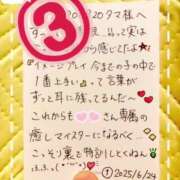 ③
2020タマ様へ
って実は
から感じてたよ
イメージプレイ 今までのきの中で
1番上手い って言葉が
ずっと耳に残ってるんだ〜
これからも さん専属の
癒しマイスターになるべく…
こっそり裏で特訓してくねん
① 2025/6/24